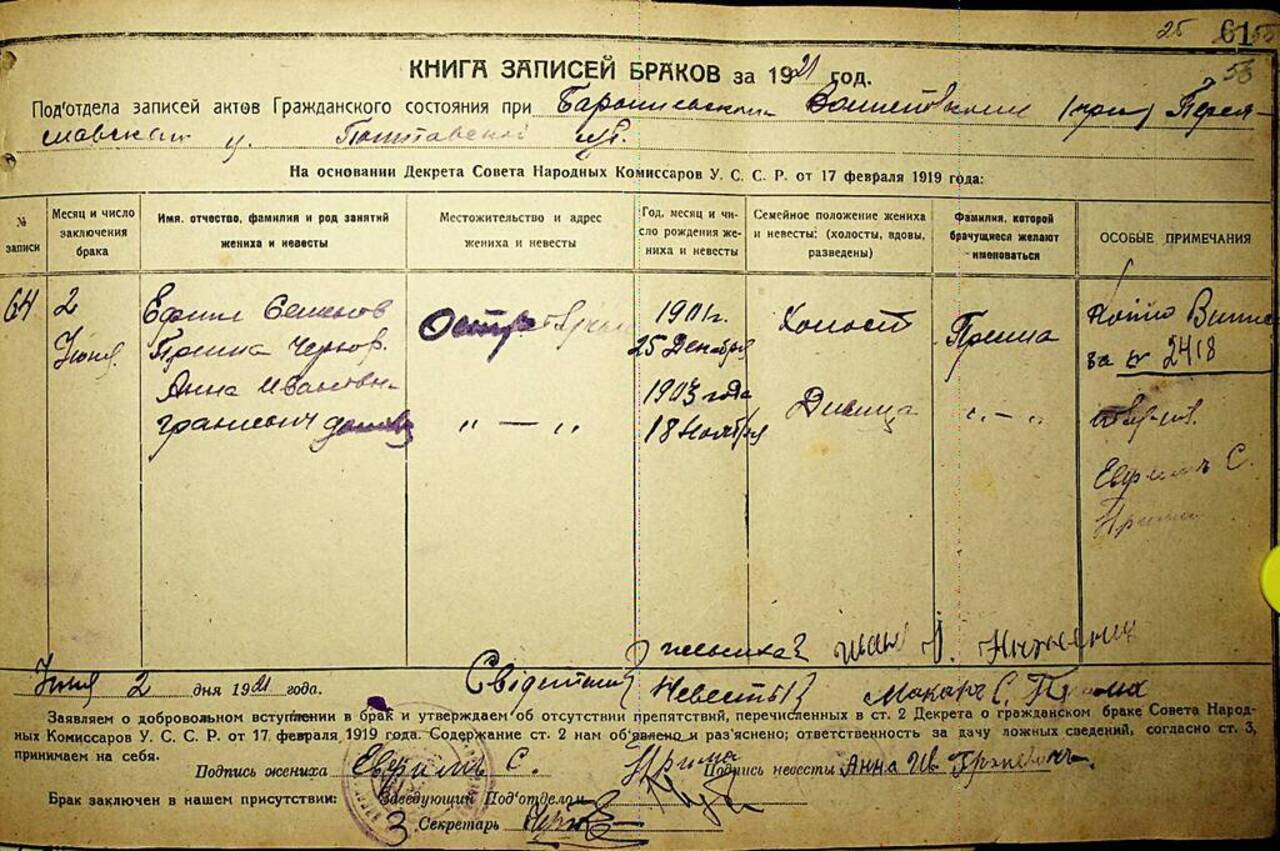 25 61
53
КНИГА ЗАПИСЕЙ БРАКОВ за 1921 год.
Под'отдела записей актов Гражданского состояния при Барышевском Волисполкоме Перея-
славского у. Полтавской губ.
На основании Декрета Совета Народных Комиссаров У. С. С. Р. от 17 февраля 1919 года:
№ записи
Месяц и число заключения брака
Имя, отчество, фамилия и род занятий жениха и невесты
Местожительство и адрес жениха и невесты
Год, месяц и число рождения жениха и невесты
Семейное положение жениха и невесты: (холосты, вдовы, разведены)
Фамилия, которой брачущиеся желают именоваться
ОСОБЫЕ ПРИМЕЧАНИЯ
64
2
Июня
Ефим Семенов
Прима
Анна Ивановн.
„ — „
1901 г.
25 Декабря
1903 года
18 Ноября
Холост
Девица
Прима
„ — „
за № 2418
С.
Июня 2 дня 1921 года.
Невесты
Макар С.
Заявляем о добровольном вступлении в брак и утверждаем об отсутствии препятствий, перечисленных в ст. 2 Декрета о гражданском браке Совета Народ-
ных Комиссаров У. С. С. Р. от 17 февраля 1919 года. Содержание ст. 2 нам об'явлено и раз'яснено; ответственность за дачу ложных сведений, согласно ст. 3,
принимаем на себя.
Подпись жениха С. Прима Подпись невесты Анна Ив
Брак заключен в нашем присутствии: Заведующий Под'отделом
Секретарь